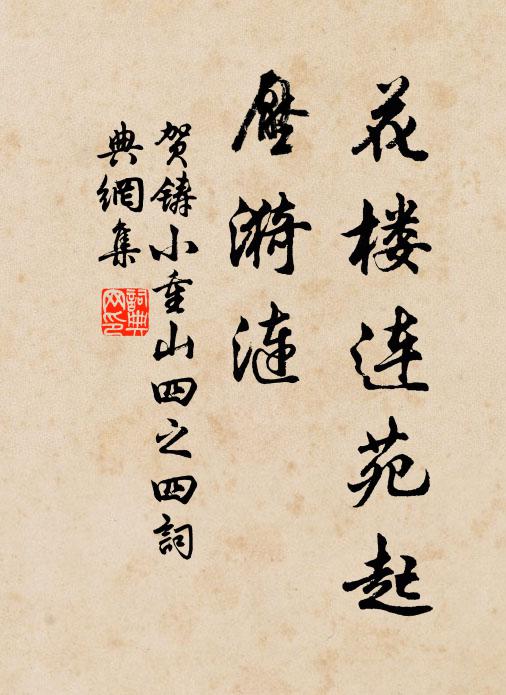 花楼连苑起
压漪涟
贺铸小重山四之四词
典網集
詞典
网印